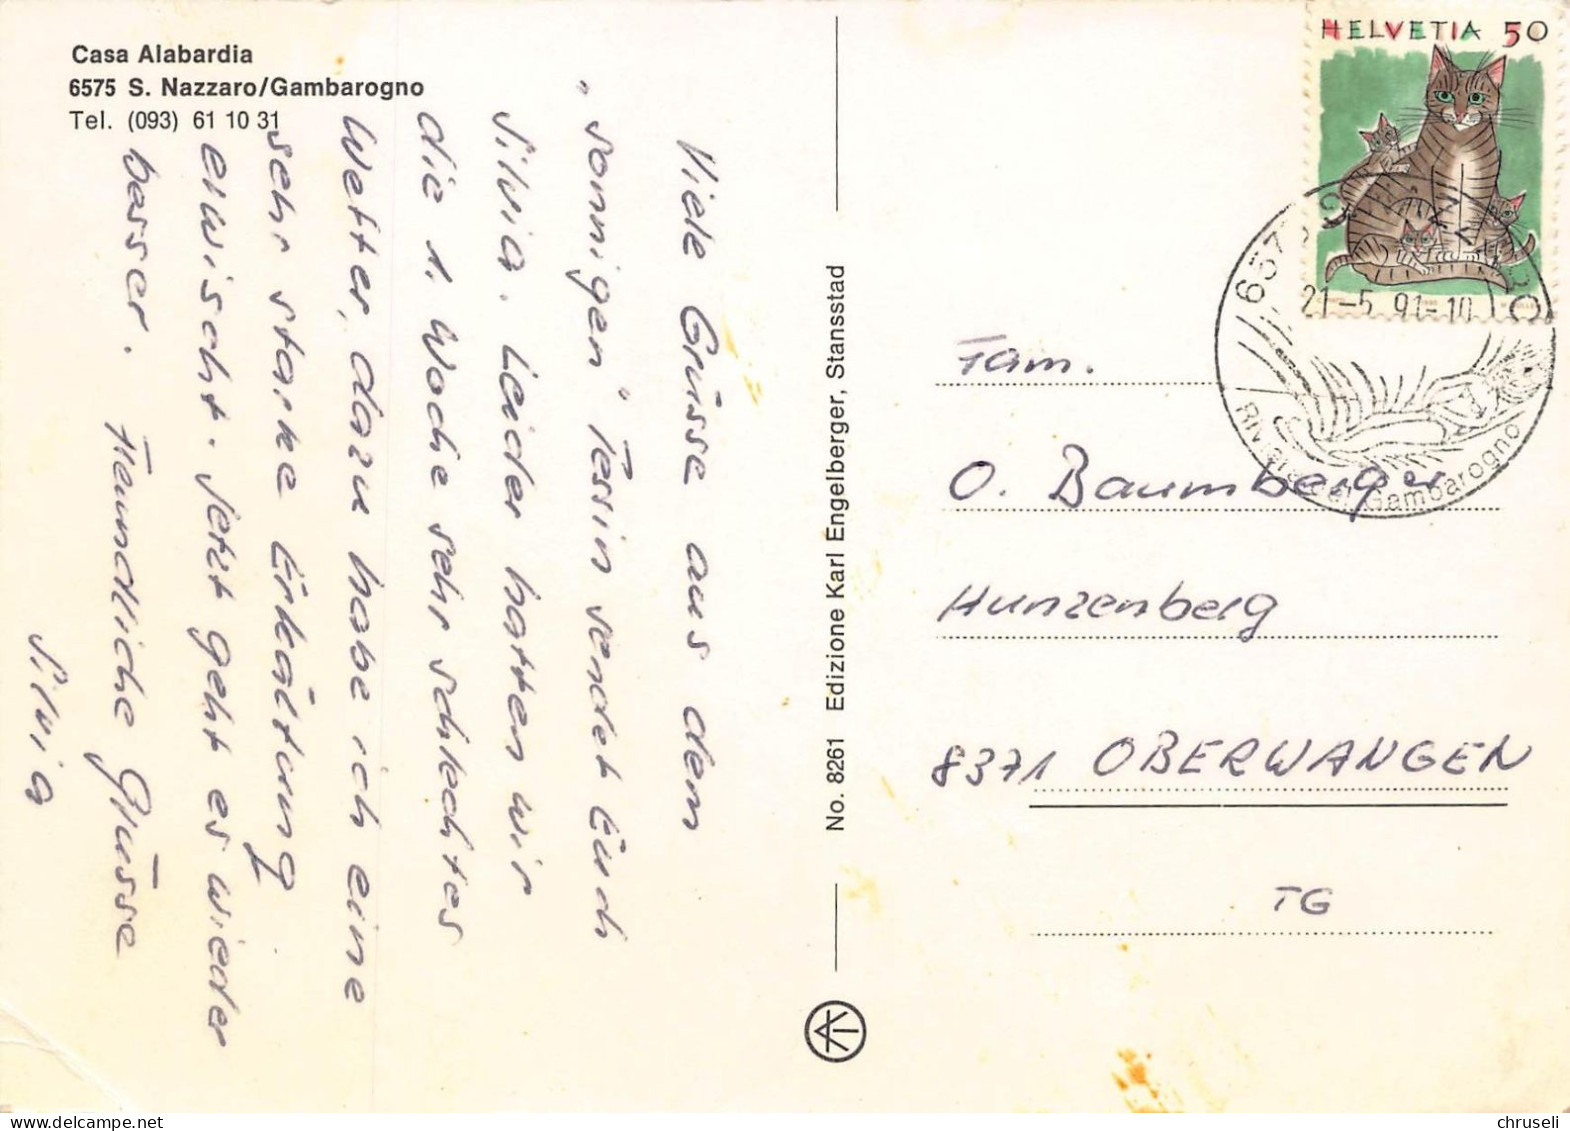 Casa Alabardia
6575 S. Nazzaro/Gambarogno
Tel. (093) 61 10 31
Viele Grüsse aus dem
„sonnigen" Tessin sendet Euch
Silvia. Leider hatten wir
die 1. Woche sehr schlechtes
Wetter, dazu habe ich eine
sehr starke Erkältung
erwischt. Jetzt geht es wieder
besser. Freundliche Grüsse
Silvia
No. 8261 Edizione Karl Engelberger, Stansstad
HELVETIA 50
21-5.91-10
Gambarogno
Fam.
O. Baumberger
Hunzenberg
8371 OBERWANGEN
TG